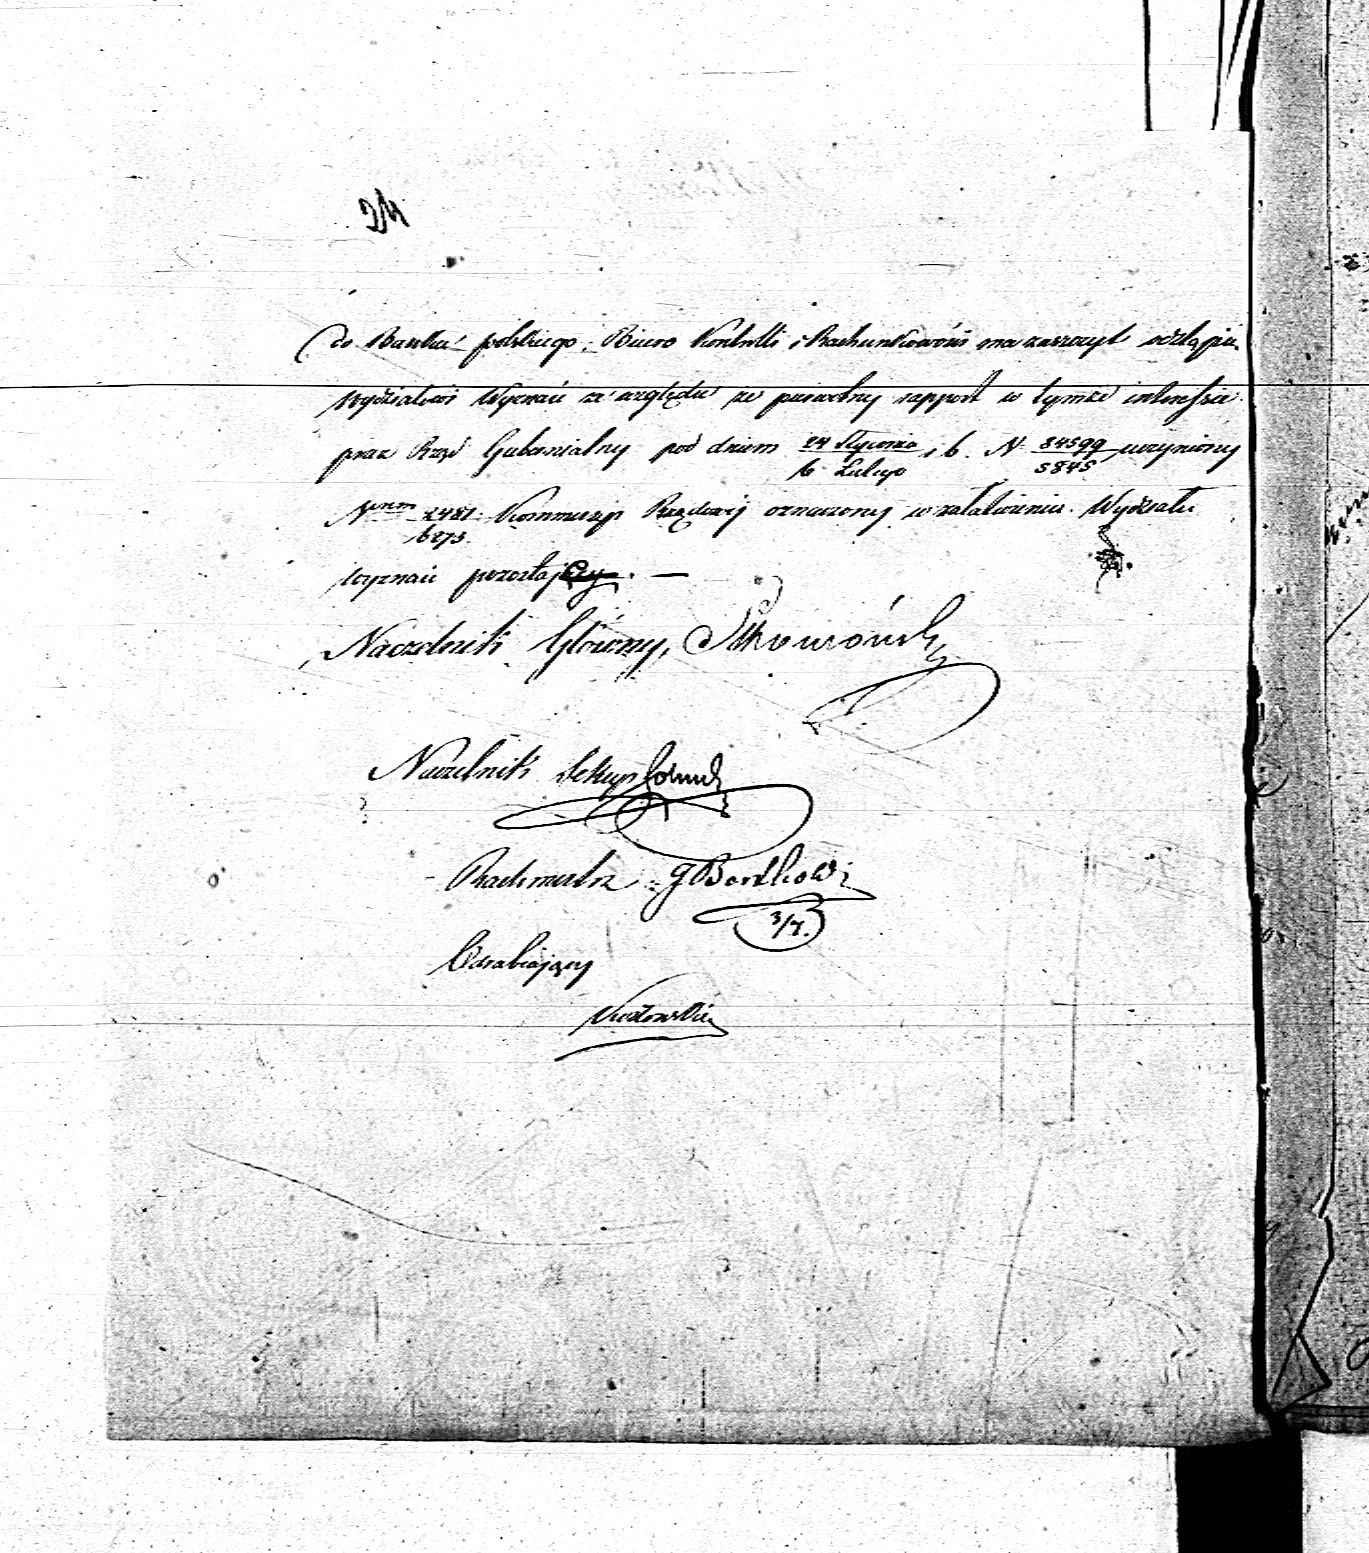 do Banku polskiego, Biuro Kontrolli i Rachunkowości ma zaszczyt odstąpić
Wydziałowi Wyznań ze względu że pierwotny rapport w tymże interessie
przez Rząd Gubernialny pod dniem 24 Stycznia / 6 Lutego r. b. N 84599 / 5845 uczyniony
Nrem 2481 / 6273 Kommissyi Rządowej oznaczony w załatwieniu Wydziału
wyznań pozostaje. —
Naczelnik Główny,
Naczelnik Sekcyi
Rachmistrz
3/7.
Odrabiający